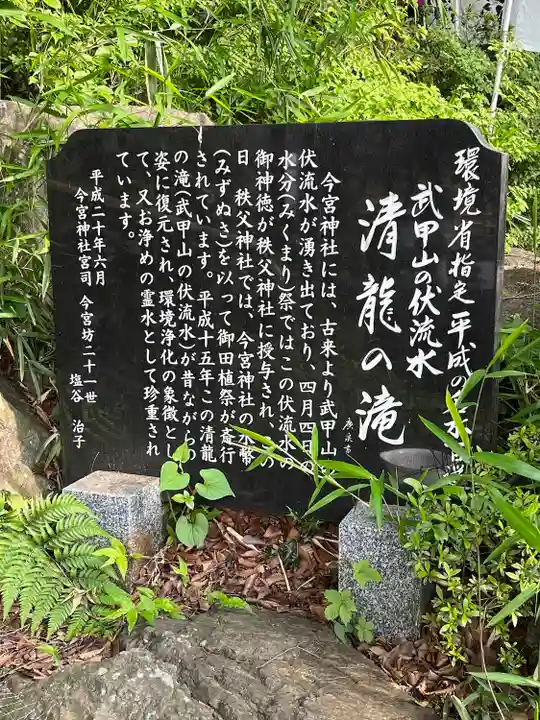 環境省指定 平成の
武甲山の伏流水
清龍の滝
今宮神社には、古来より武甲山
伏流水が湧き出ており、四月四日の
水分(みくまり)祭ではこの伏流水の
御神徳が秩父神社に授与され、
日 秩父神社では、今宮神社の水幣
(みずぬさ)を以って御田植祭が斎行
されています。平成十五年この清龍
の滝(武甲山の伏流水)が昔ながらの
姿に復元され、環境浄化の象徴とし
て、又お浄めの霊水として珍重され
ています。
平成二十年六月
今宮神社宮司 今宮坊二十一世
塩谷 治子